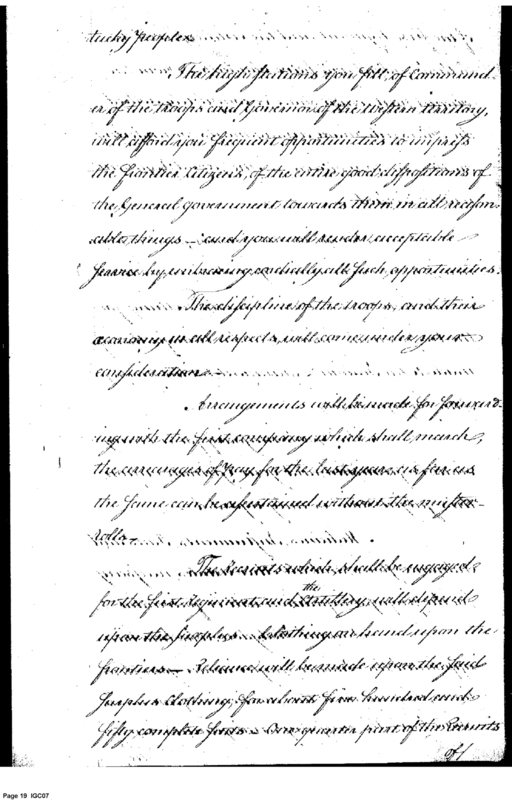 tucky peoples
The high stations you fill, of Command-
er of the troops and Governor of the western territory,
will afford you frequent oppertunities to impress
the frontier Citizens, of the entire good dispositions of
the General government towards them in all reason-
able things — and you will render acceptable
service by embracing cordially all such, opportunities.
The discipline of the troops, and their
œconomy in all respects, will come under your
consideration
Arrangements will be made for forward-
ing with the first company which shall march,
the arrearages of Pay for the last year as far as
the same can be ascertained without the muster
rolls —
The Recruits which, shall be engaged
for the first regiment and the Artillery, will depend
upon the surplus Clothing on hand upon the
frontiers — Reliance will be made upon the said
Surplus Clothing, for about five hundred and
fifty complete suits — One quarter part of the Recruits
of/
Page 19 IGC07